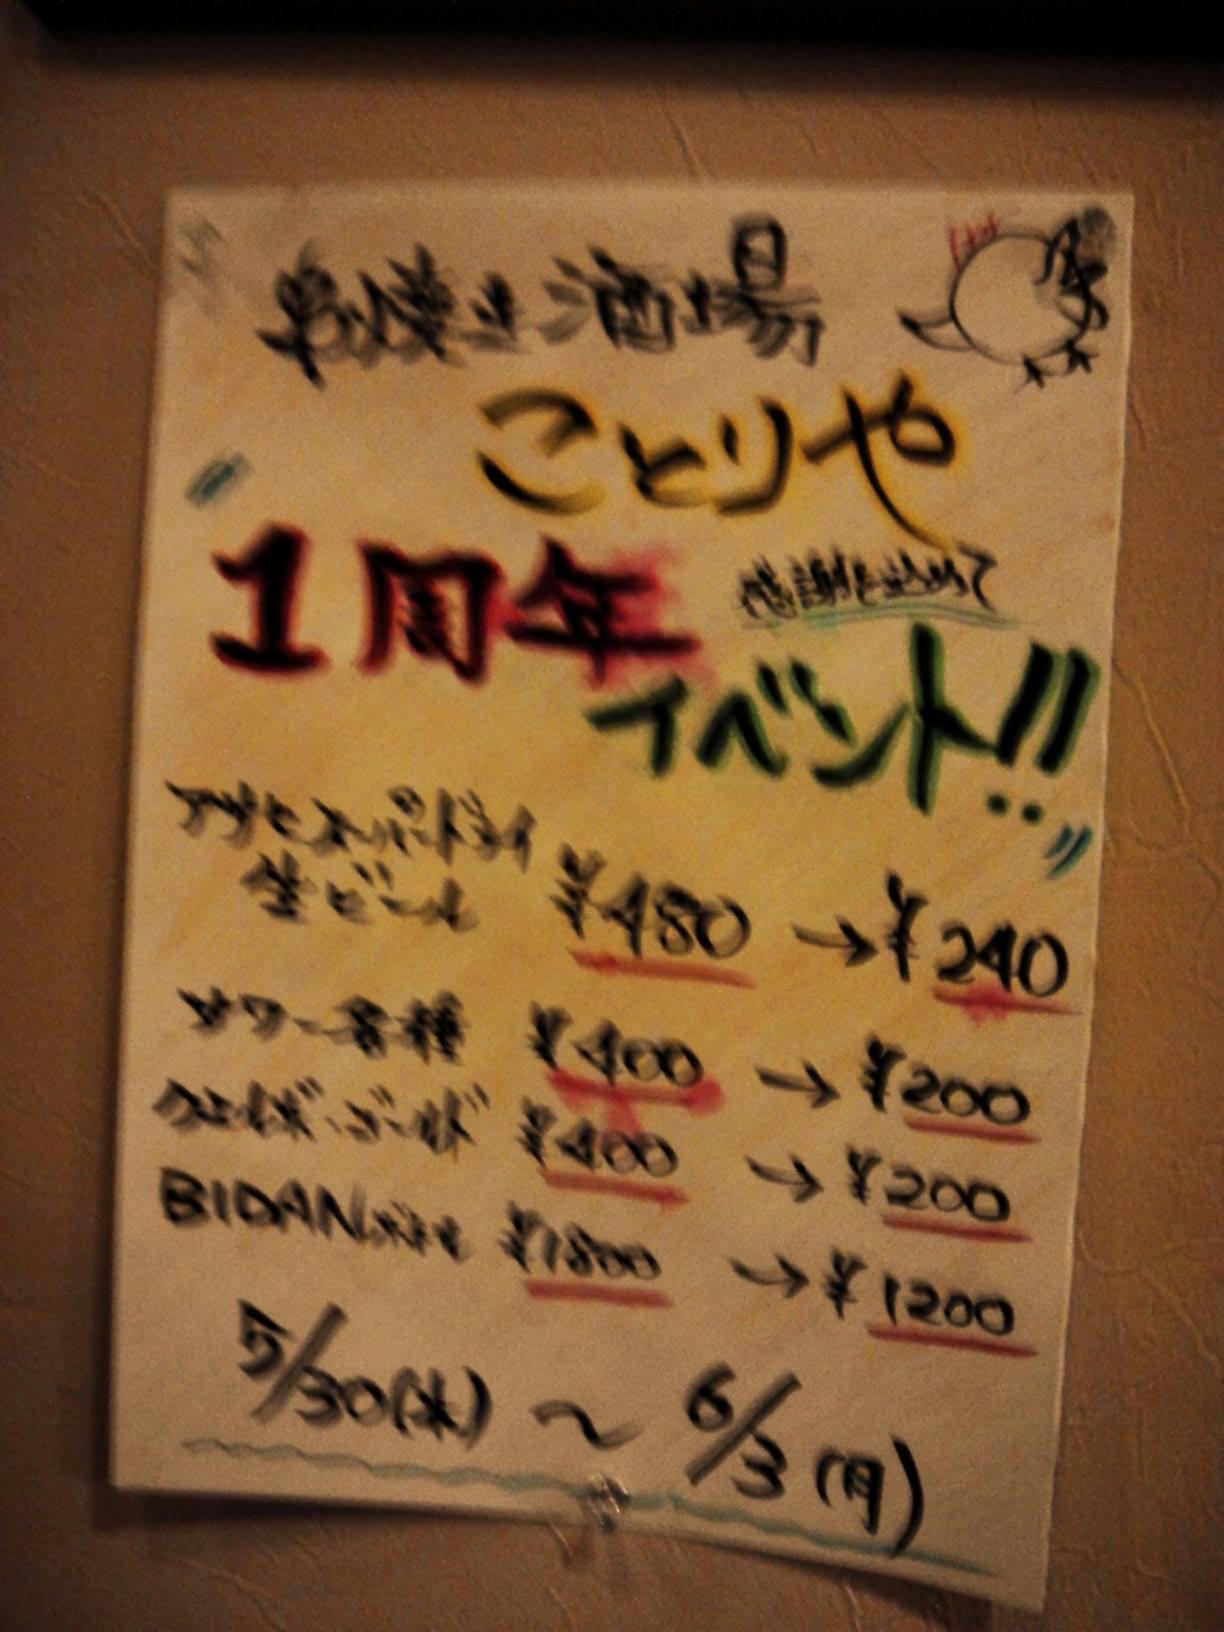 串焼き酒場
ことりや
1周年 感謝を込めて
イベント!!
アサヒスーパードライ
生ビール ¥480 → ¥240
サワー各種 ¥400 → ¥200
¥400 → ¥200
BIDANボトル ¥1800 → ¥1200
5/30(木) 〜 6/3(月)